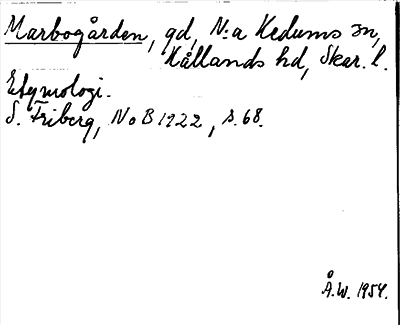 Marbogården, gd, N:a Kedums sn,
Kållands hd, Skar. l.
Etymologi.
S. Friberg, NoB 1922, s. 68.
Å.W. 1954.